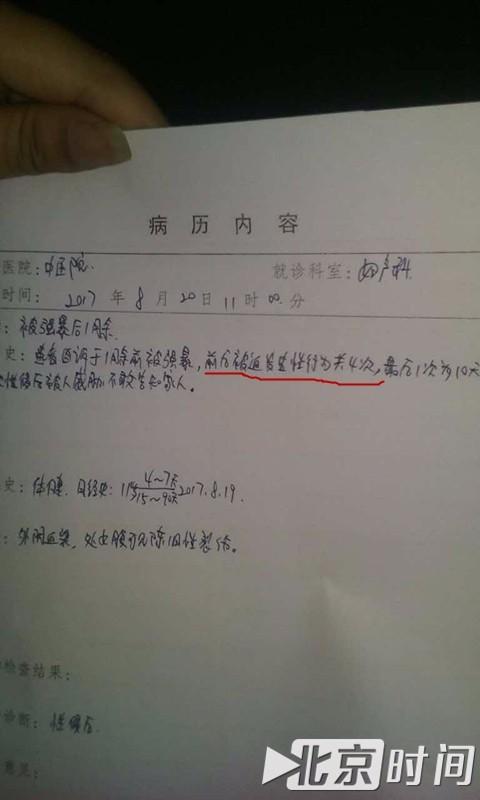 病历内容
医院：中医院 就诊科室：妇产科
时间：2017年8月20日11时00分
：被强暴后1周余
史：患者自诉于1周余前被强暴，前后被迫发生性行为共4次，最后1次为10天
性侵后被人威胁不敢告知家人。
史：体健，月经史：11岁 4～7天/15～90天 2017.8.19.
：外阴 处女膜可见陈旧性裂伤。
检查结果：
诊断：性侵后
意见：
北京时间